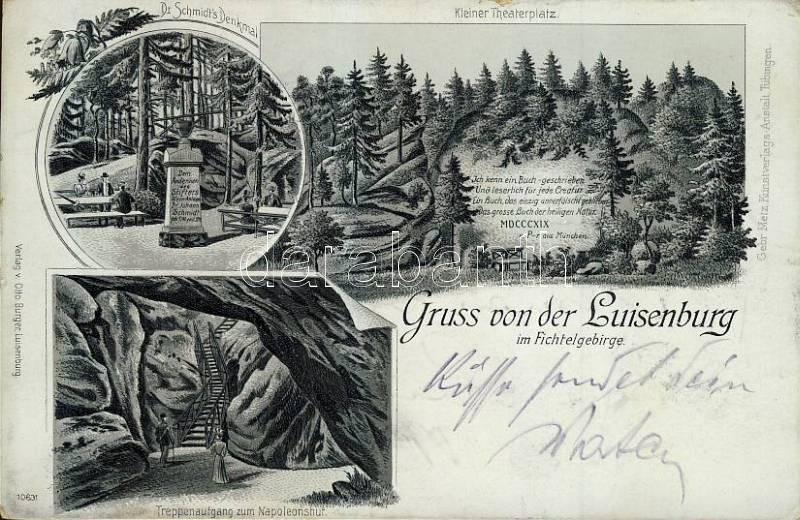 Dr. Schmidt's Denkmal
Kleiner Theaterplatz.
Dem
Stifters
Schmidt
Ich kenn ein Buch geschrieben
Und leserlich für jede Creatur
Ein Buch, das einzig unverfälscht geblieben
Das grosse Buch der heiligen Natur.
MDCCCXIX
aus München.
Gebr. Metz Kunstverlags-Anstalt, Tübingen.
darabanth
Verlag v. Otto Burger, Luisenburg
Gruss von der Luisenburg
im Fichtelgebirge.
Küsse sendet dein
10631
Treppenaufgang zum Napoleonshut.